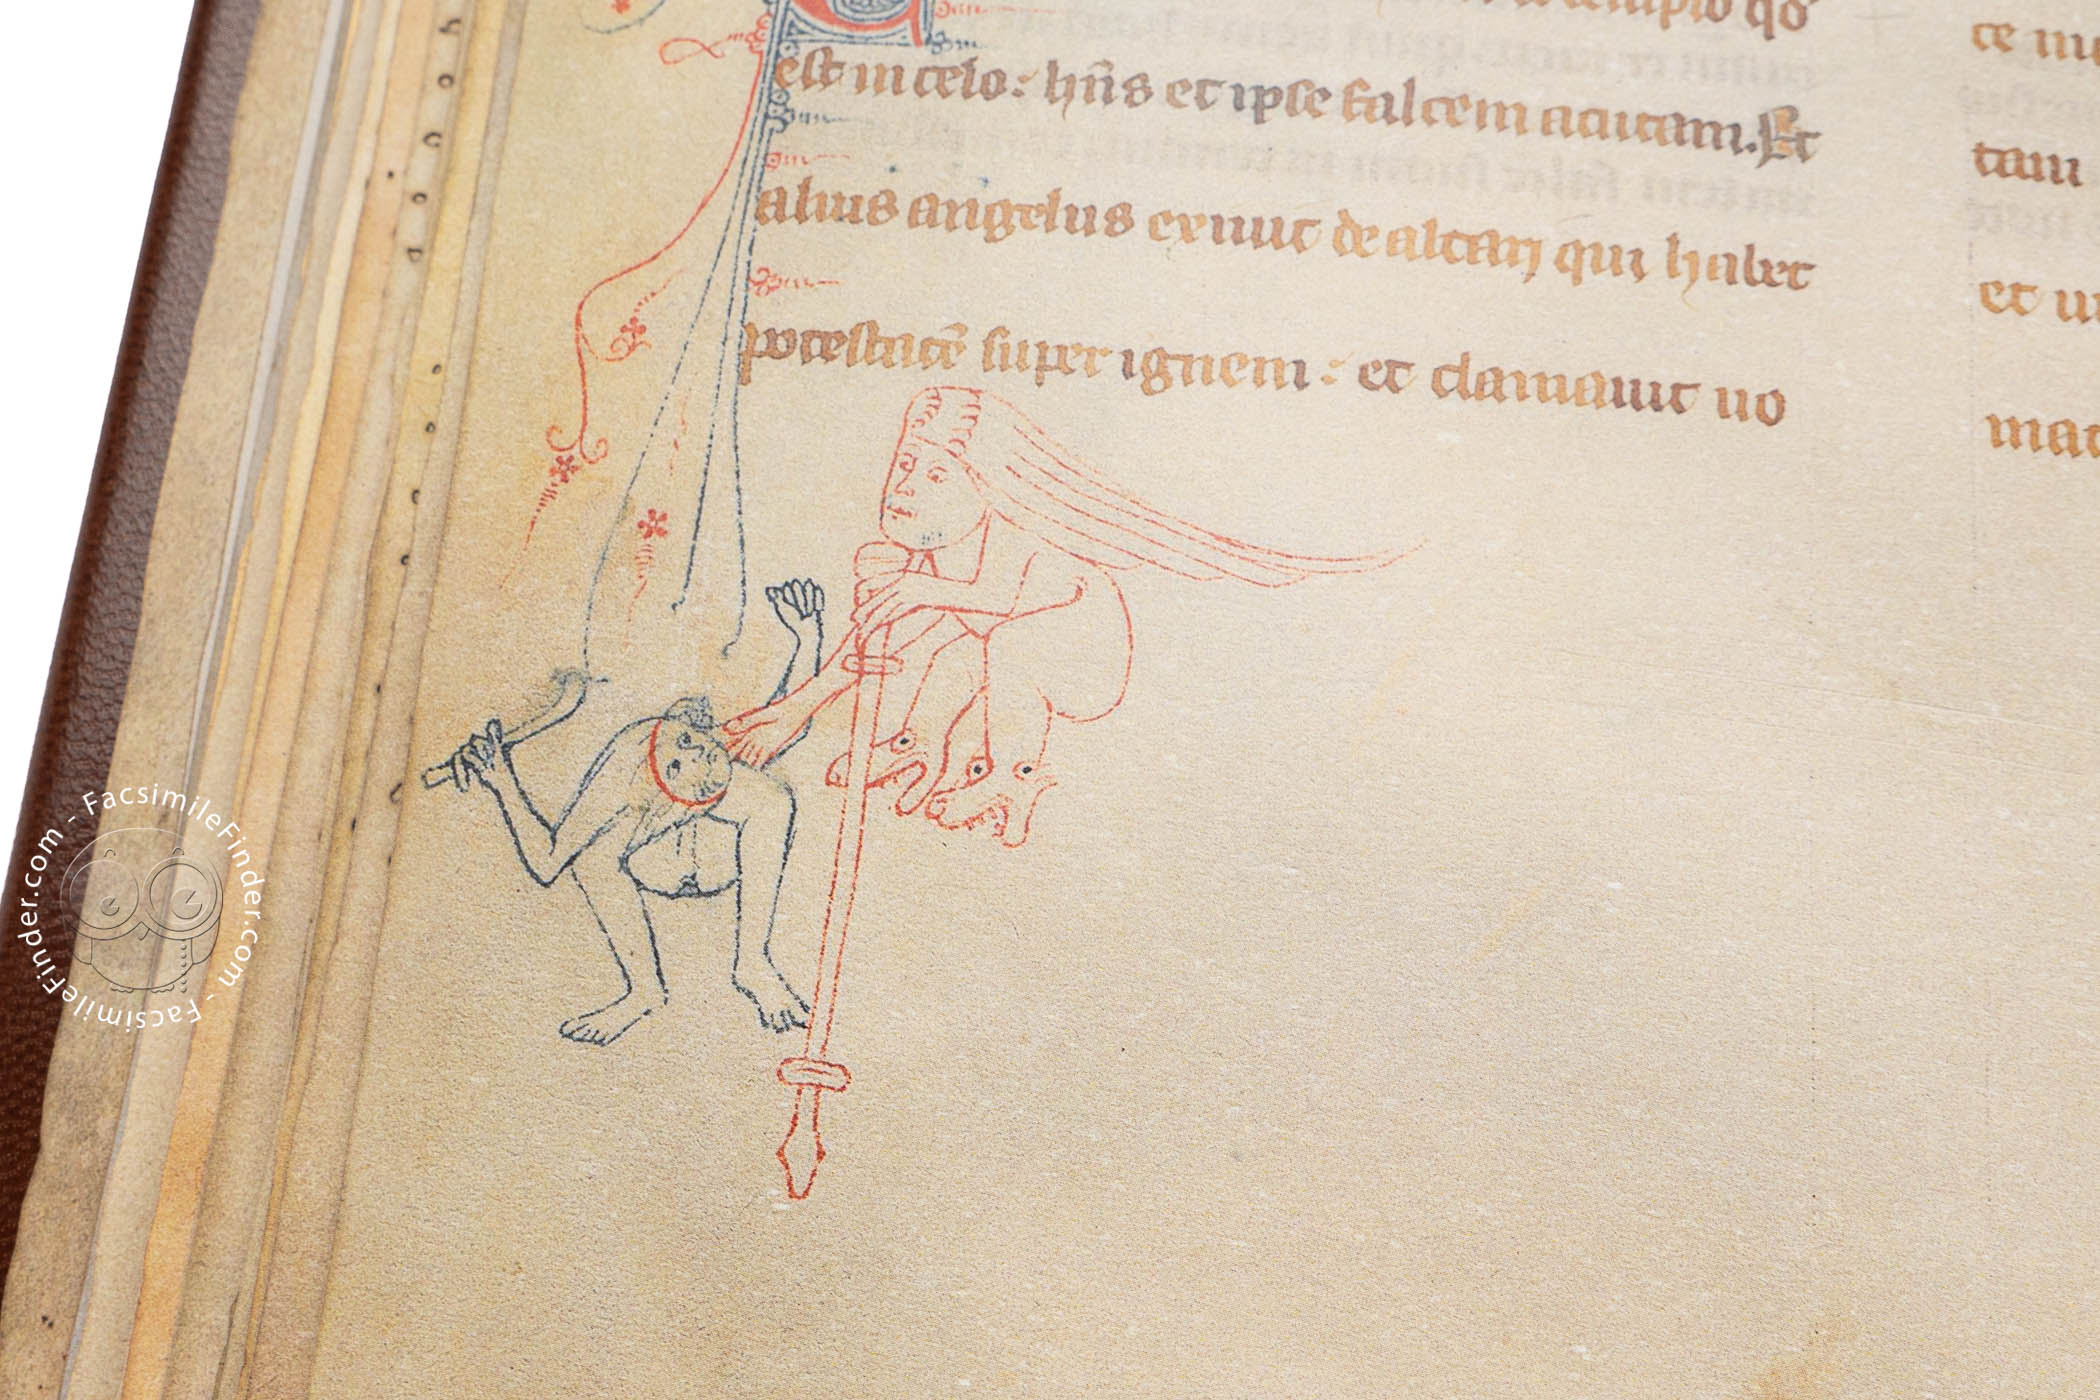 templo qd
est in celo: hñs et ipse falcem acutam. Et
alius angelus exiuit de altari qui habet
potestatē super ignem: et clamauit uo
ce m
tam
et u
mat
FacsimileFinder.com - FacsimileFinder.com -